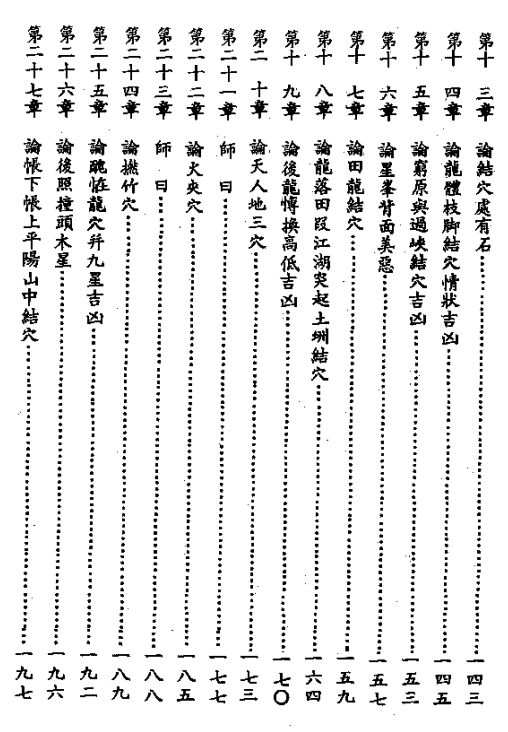 第十三章 論結穴處有石……一四三
第十四章 論龍體枝脚結穴情狀吉凶……一四五
第十五章 論窮原與過峽結穴吉凶……一五三
第十六章 論星峯背面美惡……一五七
第十七章 論田龍結穴……一五九
第十八章 論龍落田段江湖突起土洲結穴……一六四
第十九章 論後龍博換高低吉凶……一七〇
第二十章 論天人地三穴……一七三
第二十一章 師曰……一七七
第二十二章 論火夾穴……一八五
第二十三章 師曰……一八八
第二十四章 論撚竹穴……一八九
第二十五章 論醜怪龍穴幷九星吉凶……一九二
第二十六章 論後照撞頭木星……一九六
第二十七章 論帳下帳上平陽山中結穴……一九七